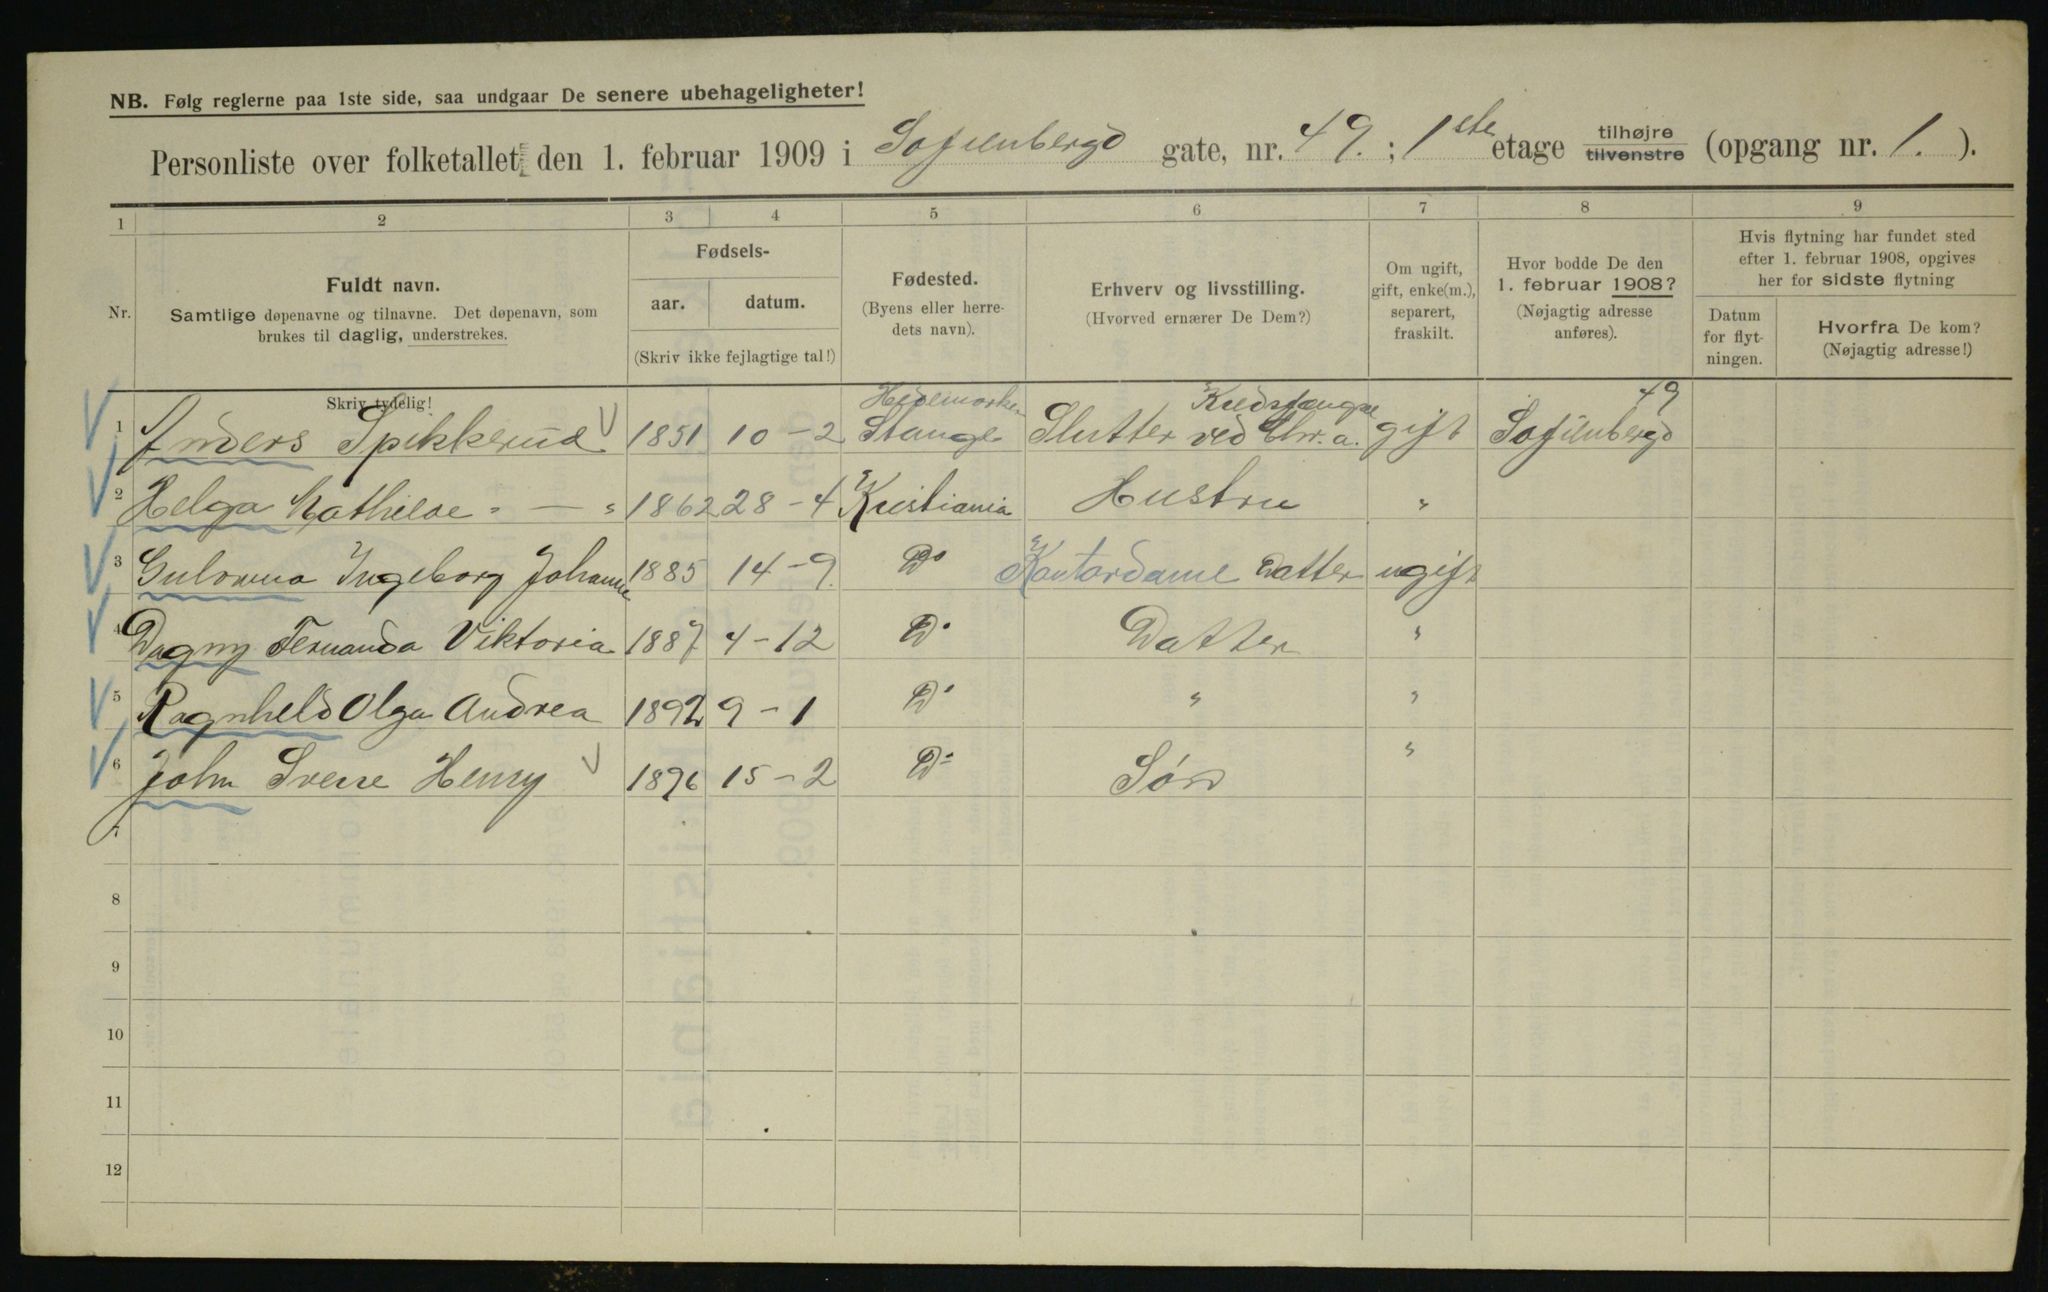 NB. Følg reglerne paa 1ste side, saa undgaar De senere ubehageligheter!
Personliste over folketallet den 1. februar 1909 i Sofienbergd gate, nr. 49. ; 1ste etage tilhøjre tilvenstre (opgang nr. 1. ).
1 2 3 4 5 6 7 8 9
Nr.
Fuldt navn.
Samtlige døpenavne og tilnavne. Det døpenavn, som
brukes til daglig, understrekes.
Skriv tydelig!
Fødsels-
aar. datum.
(Skriv ikke fejlagtige tal!)
Fødested.
(Byens eller herre-
dets navn).
Erhverv og livsstilling.
(Hvorved ernærer De Dem?)
Om ugift,
gift, enke(m.),
separert,
fraskilt.
Hvor bodde De den
1. februar 1908?
(Nøjagtig adresse
anføres).
Hvis flytning har fundet sted
efter 1. februar 1908, opgives
her for sidste flytning
Datum
for flyt-
ningen.
Hvorfra De kom?
(Nøjagtig adresse!)
Hedemarken Kredsfængse 49
1 Anders Spikkerud 1851 10-2 Stange Slutter ved Chr.a. gift Sofienbergd
2 Helga Mathilde " — " 1862 28-4 Kristiania Hustru "
3 Ingeborg Johanne 1885 14-9. Do Kontordame Datter ugift
4 Dagny Fernanda Viktoria 1887 4-12 Do Datter "
5 Ragnhild Olga Andrea 1892 9-1 Do " "
6 John Sverre Henry 1896 15-2 Do Søn "
7
8
9
10
11
12